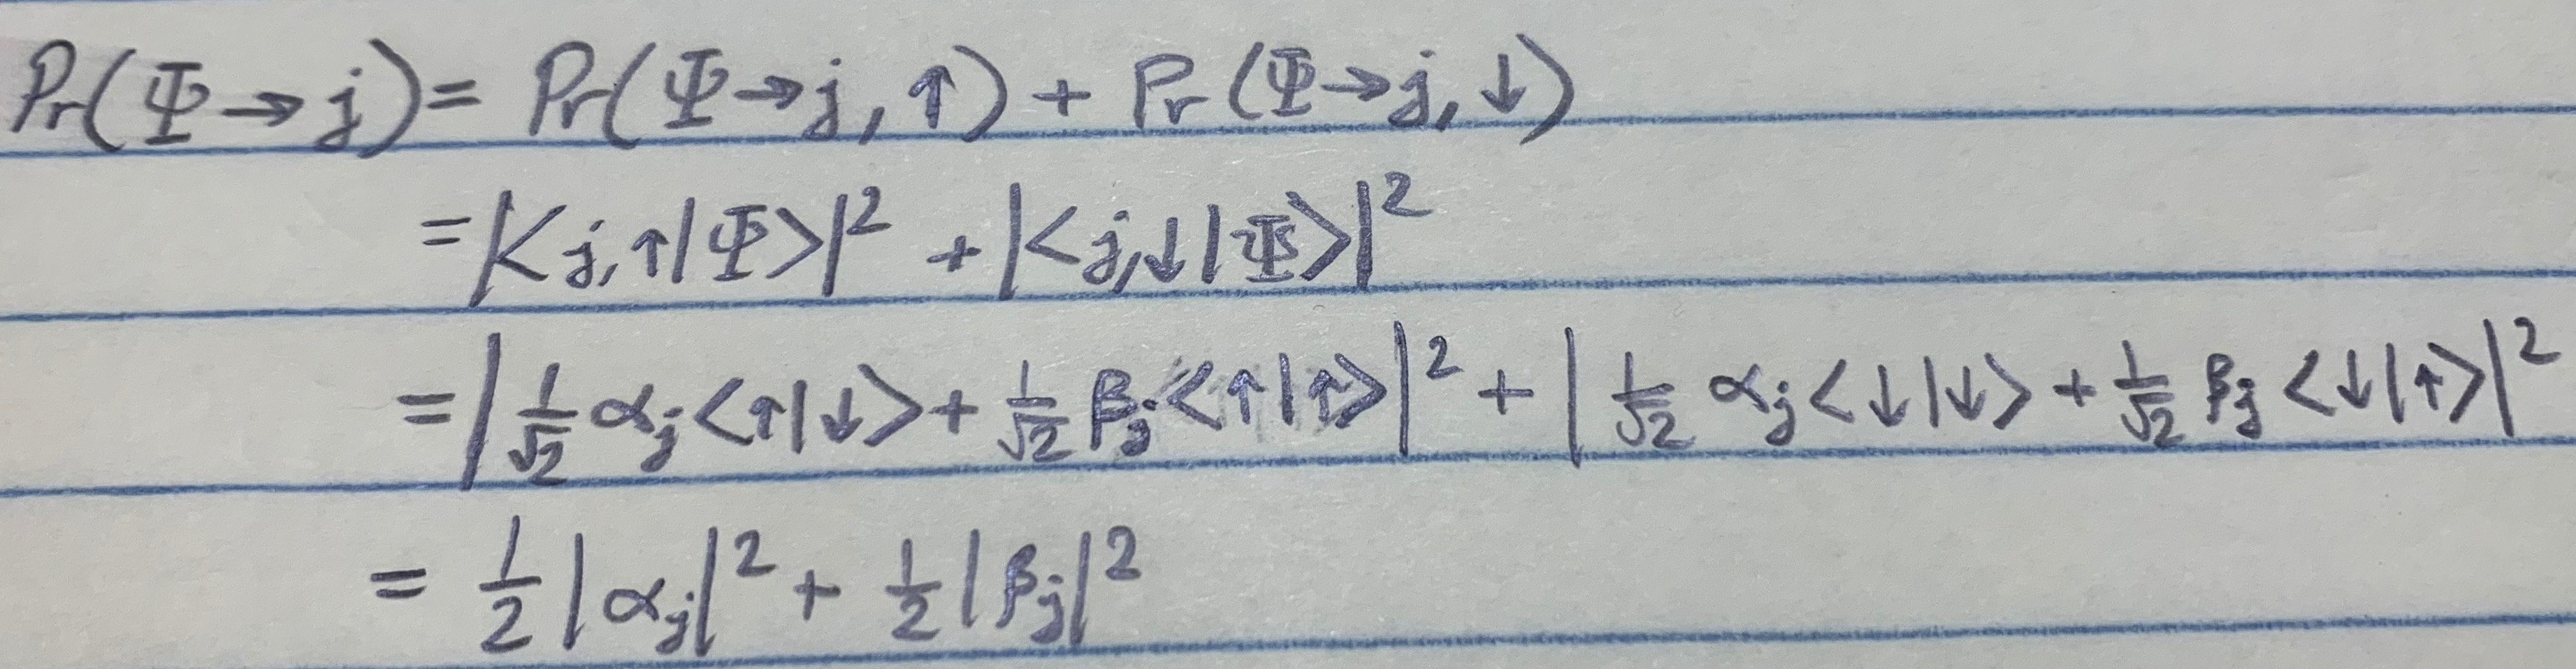 Pr(Ψ→j) = Pr(Ψ→j,↑) + Pr(Ψ→j,↓)
= |<j,↑|Ψ>|² + |<j,↓|Ψ>|²
= |1/√2 αⱼ<↑|↓> + 1/√2 βⱼ<↑|↑>|² + |1/√2 αⱼ<↓|↓> + 1/√2 βⱼ<↓|↑>|²
= 1/2|αⱼ|² + 1/2|βⱼ|²